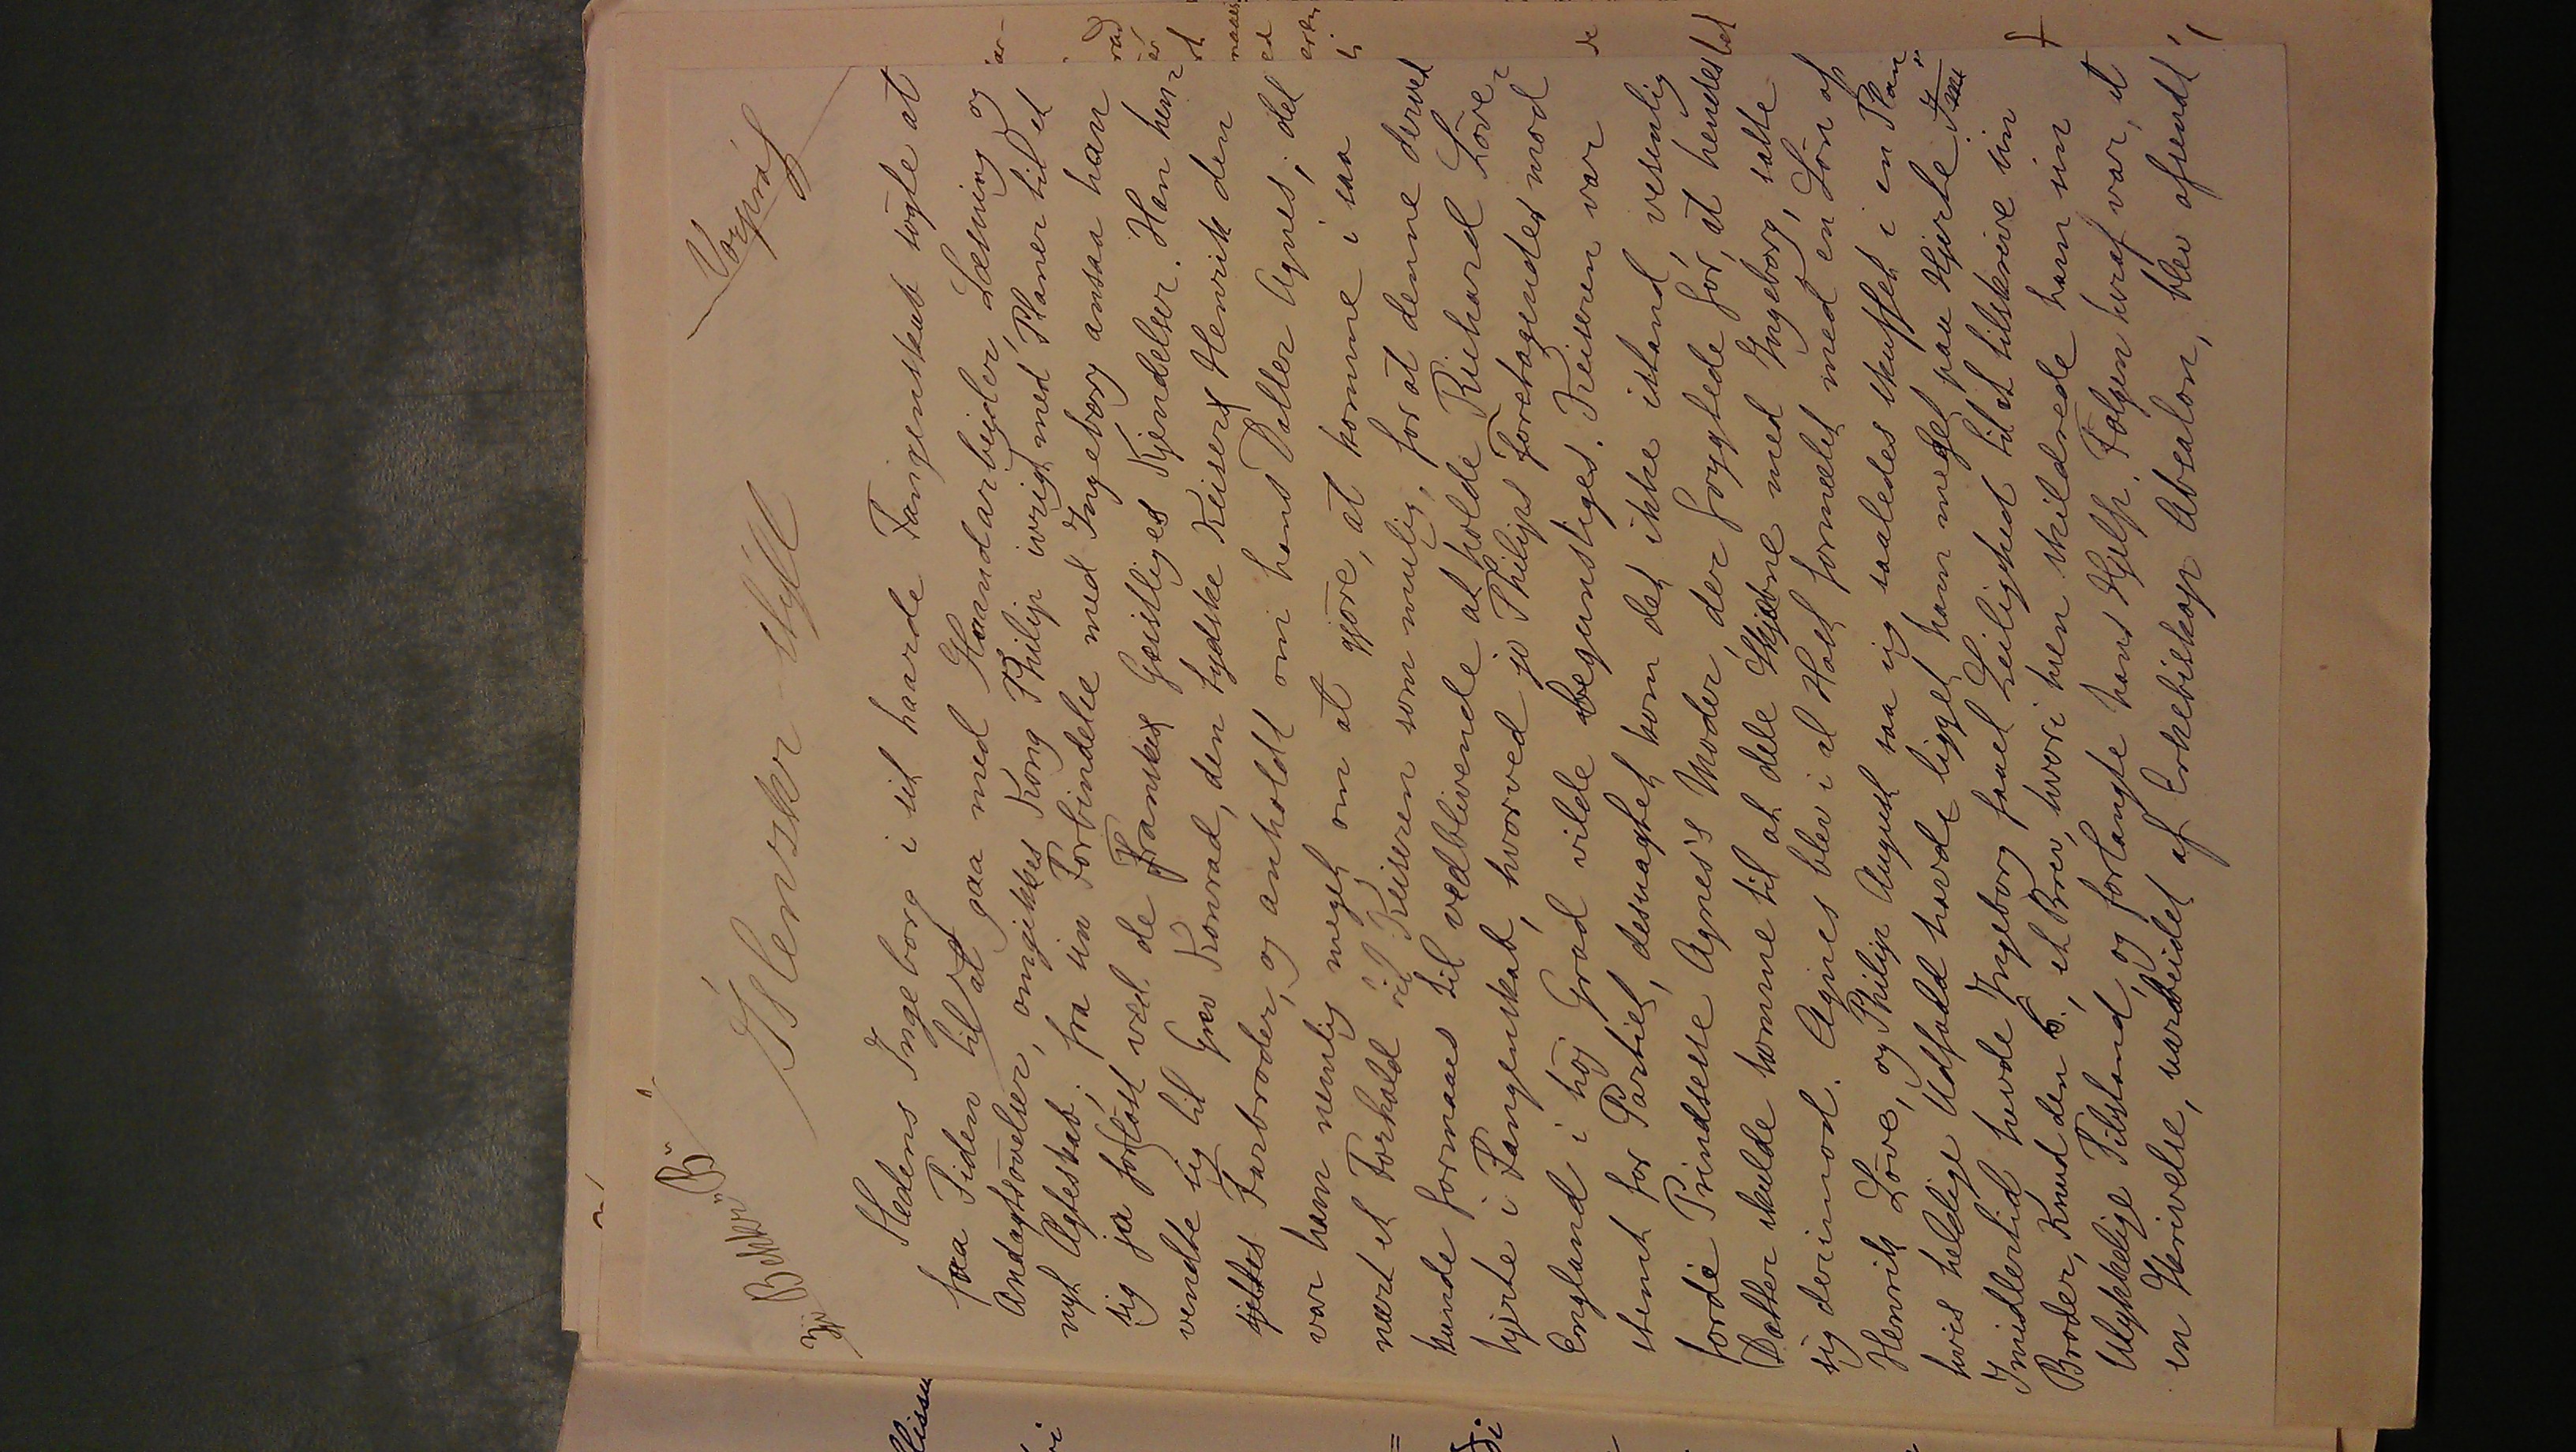 In „Bekker „B"
Íslenzkur Stýll
Vorpróf
Medens Ingeborg i sit haarde Fangenskab søgte at
faa Tiden til at gaa med Haandarbeider, Læsning og
Andagtsøvelser, omgikkes Kong Philip ivrigt med Planer til et
nyt Ægteskab; fra sin Forbindelse med Ingeborg ansaa han
sig ja forløst ved de franske Geistliges Kjendelser. Han hen-
vendte sig til Grev Konrad, den tydske Keisers Henrik den
sjettes Farbroder, og anholdt om hans Datter Agnes; det
var ham nemlig meget om at gjøre, at komme i saa
nært et Forhold til Keiseren som mulig, for at denne derved
kunde formaaes til vedblivende at holde Richard Løve-
hjerte i Fangenskab, hvorved jo Philips Foretagender mod
England i høj Grad vilde begunstiges. Keiseren var
stemt for Partiet, desuagtet kom det ikke istand, vesenlig
fordi Prindsesse Agnes's Moder, der frygtede for, at hendes
Datter skulde komme til at dele Skjæbne med Ingeborg, satte
sig derimod. Agnes blev i al Hast formælet med en Søn af
Henrik Løve, og Philip August saa sig saaledes skuffet i en Plan
hvis heldige Udfald havde ligget ham meget paa Hjerte.
Imidlertid havde Ingeborg faaet Leilighed til at tilskrive sin
Broder, Knud den 6., et Brev, hvori hun skildrede ham sin
Ulykkelige Tilstand, og forlangte hans Hjelp. Følgen heraf var, at
en Skrivelse, udarbeidet af Erkebiskop Absalon, blev afsendt